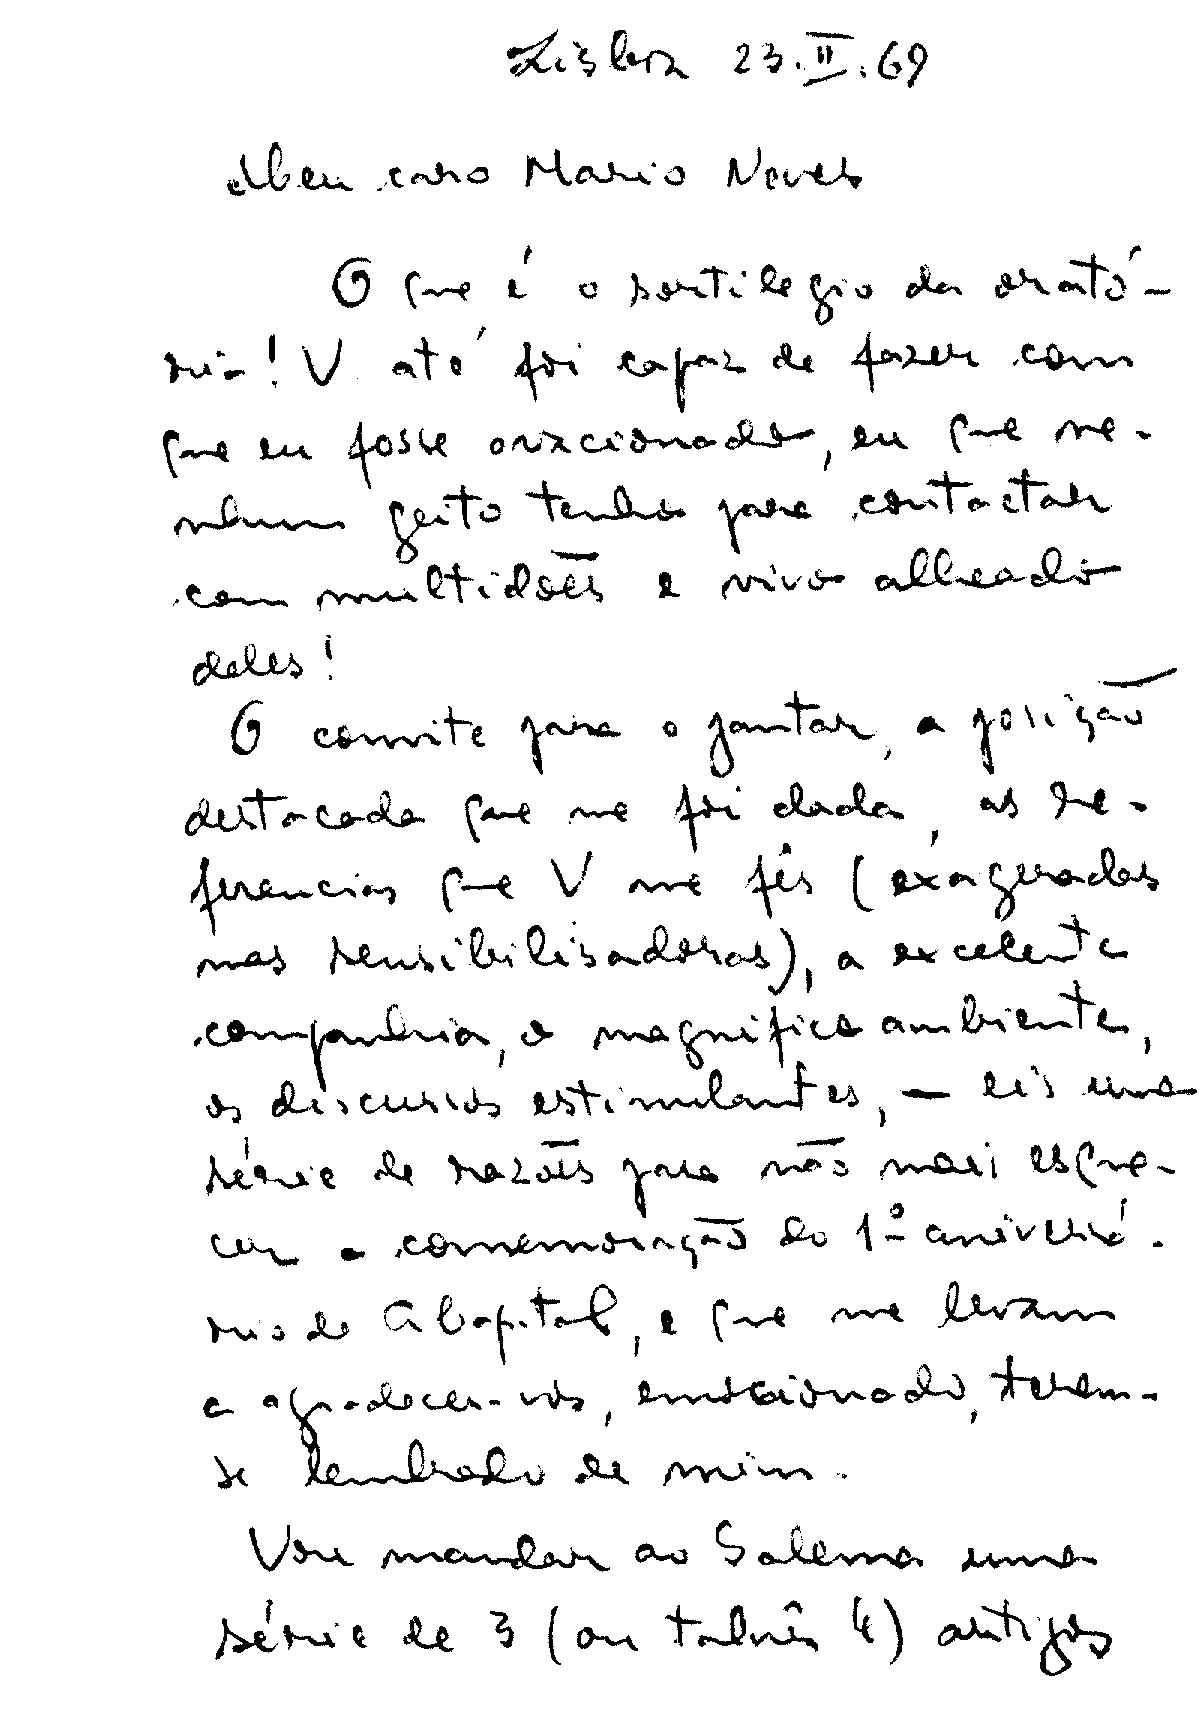 Lisboa 23.II.69
Meu caro Mario Neves
O que é o sortilegio da orató-
ria! V até foi capaz de fazer com
que eu fosse ovacionado, eu que ne-
nhum geito tenho para contactar
com multidões e vivo alheado
delas!
O convite para o jantar, a posição
destacada que me foi dada, as re-
ferencias que V me fês (exageradas
mas sensibilisadoras), a excelente
companhia, o magnífico ambiente,
os discursos estimulantes, — eis uma
série de razões para não mais esque-
cer a comemoração do 1º aniversá-
rio de A Capital, e que me levam
a agradecer-vos, emocionado, terem-
se lembrado de mim.
Vou mandar ao Salema uma
série de 3 (ou talvês 4) artigos